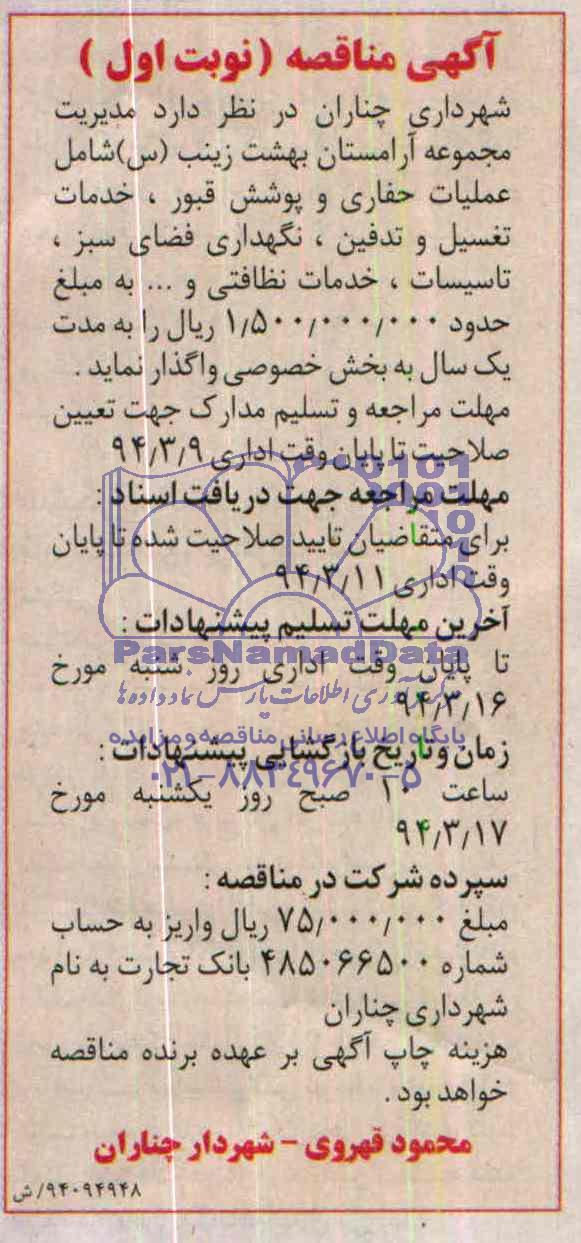 آگهی مناقصه ( نوبت اول )
شهرداری چناران در نظر دارد مدیریت
مجموعه آرامستان بهشت زینب (س)شامل
عملیات حفاری و پوشش قبور ، خدمات
تغسیل و تدفین ، نگهداری فضای سبز ،
تاسیسات ، خدمات نظافتی و ... به مبلغ
حدود ۱/۵۰۰/۰۰۰/۰۰۰ ریال را به مدت
یک سال به بخش خصوصی واگذار نماید .
مهلت مراجعه و تسلیم مدارک جهت تعیین
صلاحیت تا پایان وقت اداری ۹۴/۳/۹
مهلت مراجعه جهت دریافت اسناد :
برای متقاضیان تایید صلاحیت شده تا پایان
وقت اداری ۹۴/۳/۱۱
آخرین مهلت تسلیم پیشنهادات :
ParsNamadData
تا پایان وقت اداری روز شنبه مورخ
گردآوری اطلاعات پارس نماد داده ها
۹۴/۳/۱۶
پایگاه اطلاع رسانی مناقصه و مزایده
زمان و تاریخ بازگشایی پیشنهادات :
۰۲۱-۸۸۳۴۹۶۷۰-۵
ساعت ۱۰ صبح روز یکشنبه مورخ
۹۴/۳/۱۷
سپرده شرکت در مناقصه :
مبلغ ۷۵/۰۰۰/۰۰۰ ریال واریز به حساب
شماره ۴۸۵۰۶۶۵۰۰ بانک تجارت به نام
شهرداری چناران
هزینه چاپ آگهی بر عهده برنده مناقصه
خواهد بود .
محمود قهروی - شهردار چناران
۹۴۰۹۴۹۴۸/ش